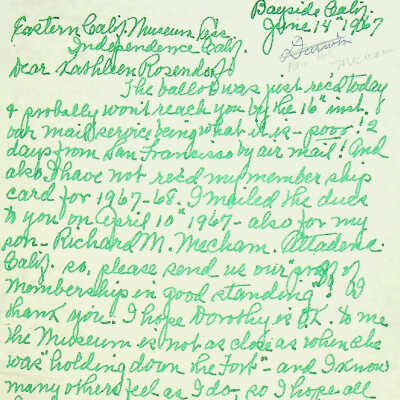 Bayside Calif.
June 14" 1967
Eastern Calif. Museum Ass.
Independence Calif.
Darwin
Mecham
Dear Kathleen Rosendorf
The ballot was just rec'd today
& probably won't reach you by the 16" inst.
our mail service being what it is - poor! 2
days from San Francisco by air mail! And
also I have not rec'd my member ship
card for 1967-68. I mailed the dues
to you on April 10" 1967 - also for my
son - Richard M. Mecham. Altadena.
Calif. so, please send us our "proof of
Membership in good standing"! I
thank you! I hope Dorothy is O.K. to me
the Museum is not as close as when she
was "holding down the Fort" - and I know
many others feel as I do, so I hope all